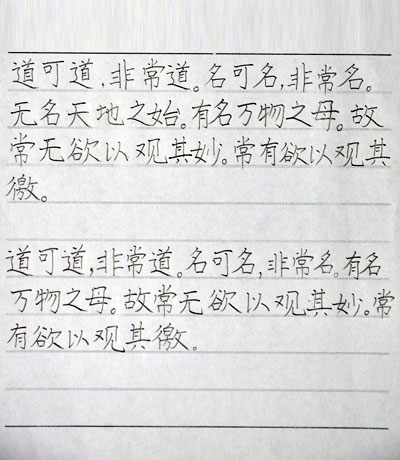 道可道，非常道。名可名，非常名。
无名天地之始。有名万物之母。故
常无欲以观其妙。常有欲以观其
徼。
道可道，非常道。名可名，非常名。有名
万物之母。故常无欲以观其妙。常
有欲以观其徼。